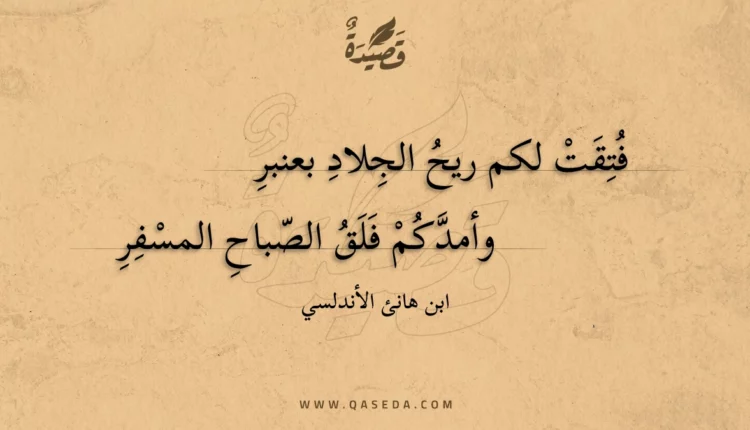 قَصِيْدَةٌ
فُتِقَتْ لكم ريحُ الجِلادِ بعنبرِ
وأمدَّكُمْ فَلَقُ الصّباحِ المسْفِرِ
ابن هانئ الأندلسي
WWW.QASEDA.COM